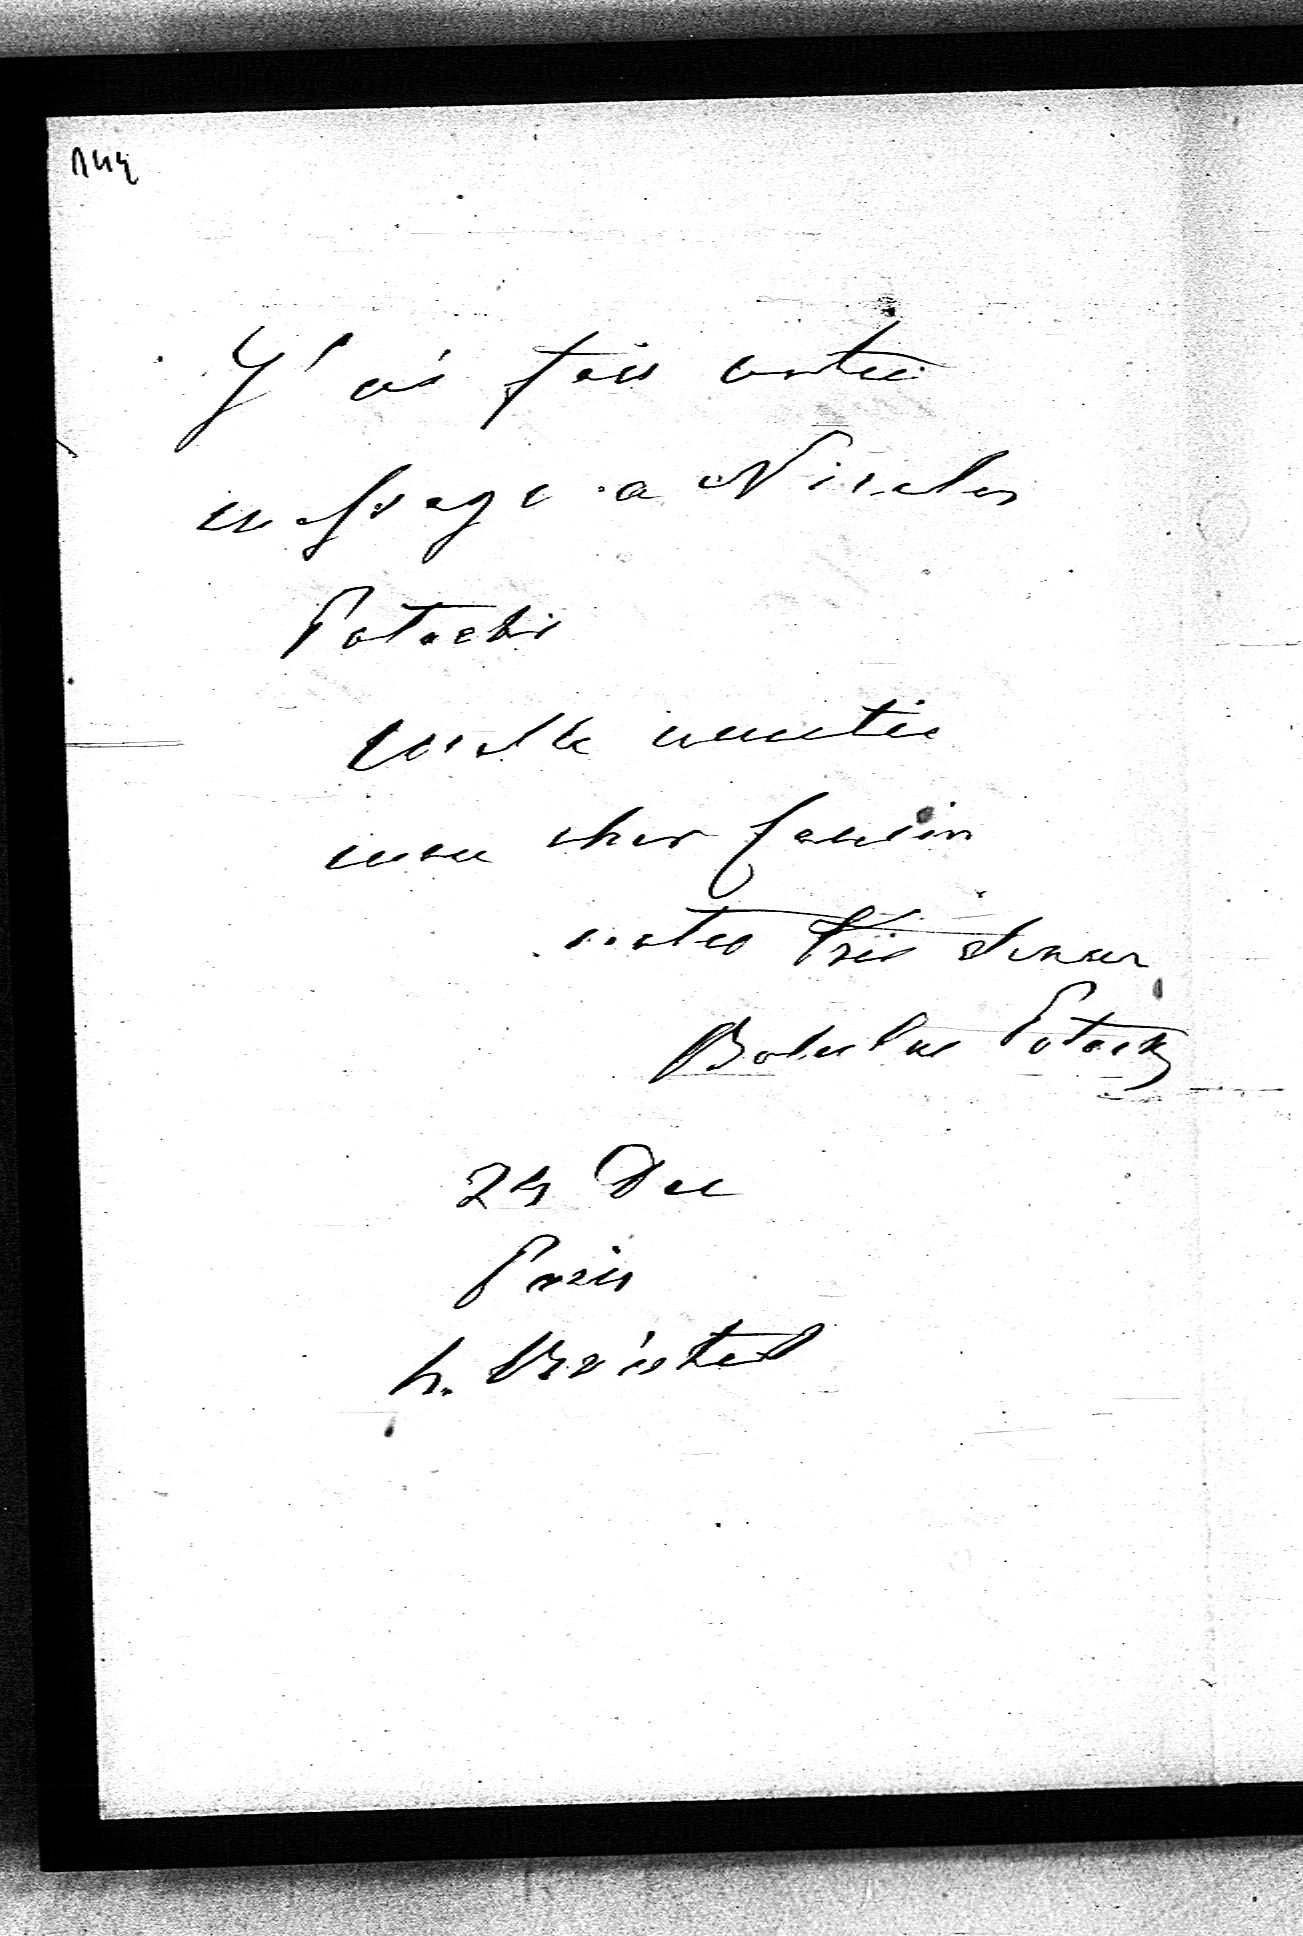 144
J'ai fait votre
message a Nicolas
Potocki
mon cher Cousin
votre très
Potocki
24 Dec
Paris
h. Bristol